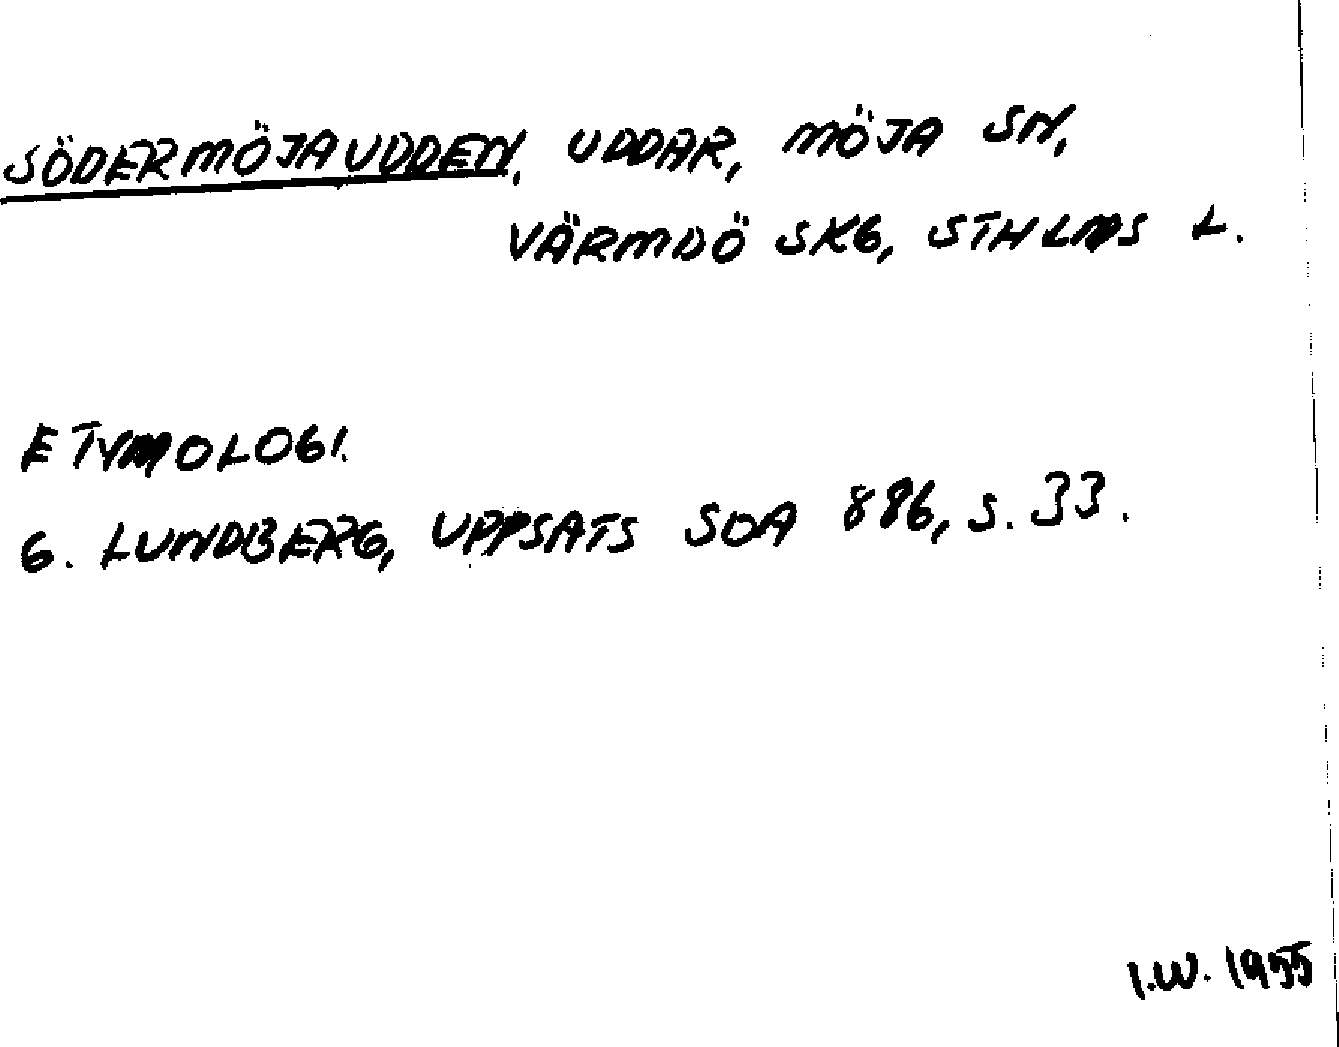 SÖDERMÖJAUDDEN, UDDAR, MÖJA SN,
VÄRMDÖ SKG, STHLMS L.
ETYMOLOGI.
G. LUNDBERG, UPPSATS SOA 886, S. 33.
I.W. 1955